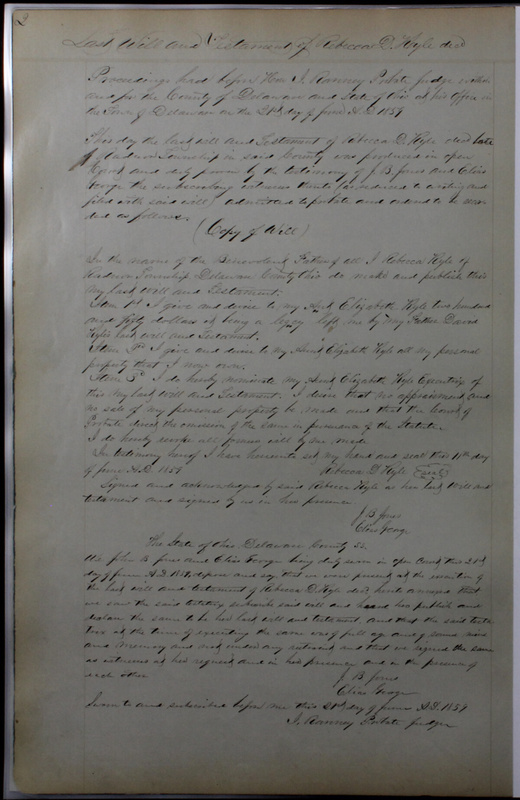 2
Last Will and Testament of Rebecca D. Hyle decd
Proceedings had before Hon I. Ranney Probate judge within
and for the County of Delaware and State of Ohio at his Office in
the Town of Delaware on the 21st day of June A.D. 1859
This day the last will and Testament of Rebecca D. Hyle decd late
of Radnor Township in said County was produced in open
Court and duly proven by the testimony of J. B. Jones and Elias
George the subscribing witnesses thereto (as reduced to writing and
filed with said will) admitted to probate and ordered to be recor-
ded as follows.
(Copy of Will)
In the name of the Benevolent Father of all I Rebecca Hyle of
Radnor Township Delaware County Ohio do make and publish this
my last will and Testament.
Item 1st I give and devise to my Aunt Elizabeth Hyle two hundred
and fifty dollars it being a legacy left me by my Father David
Hyles last will and Testament.
Item I give and devise to my Aunt Elizabeth Hyle all my personal
property that I now own.
Item 3d I do hereby nominate my Aunt Elizabeth Hyle Executrix of
this my last will and Testament. I desire that no appraisement and
no sale of my personal property be made and that the Court of
Probate direct the omission of the same in pursuance of the Statute.
I do hereby revoke all former will by me made
In testimony hereof I have hereunto set my hand and seal this 11th day
of June A.D. 1859 Rebecca D. Hyle (Seal)
Signed and acknowledged by said Rebecca Hyle as her last Will and
testament and signed by us in her presence
J B Jones
Elias George
The State of Ohio Delaware County SS.
We John B Jones and Elias George being duly sworn in open Court this 21st
day of June A.D. 1859, depose and say that we were present at the execution of
the last will and testament of Rebecca D. Hyle decd hereto annexed that
we saw the said testatrix subscribe said will and heard her publish and
declare the same to be her last will and testament, and that the said testa-
trix at the time of executing the same was of full age and of sound mind
and memory and not under any restraint and that we signed the same
as witnesses at her request and in her presence and in the presence of
each other
J B Jones
Elias George
Sworn to and subscribed before me this 21st day of June A.D. 1859
I. Ranney Probate judge